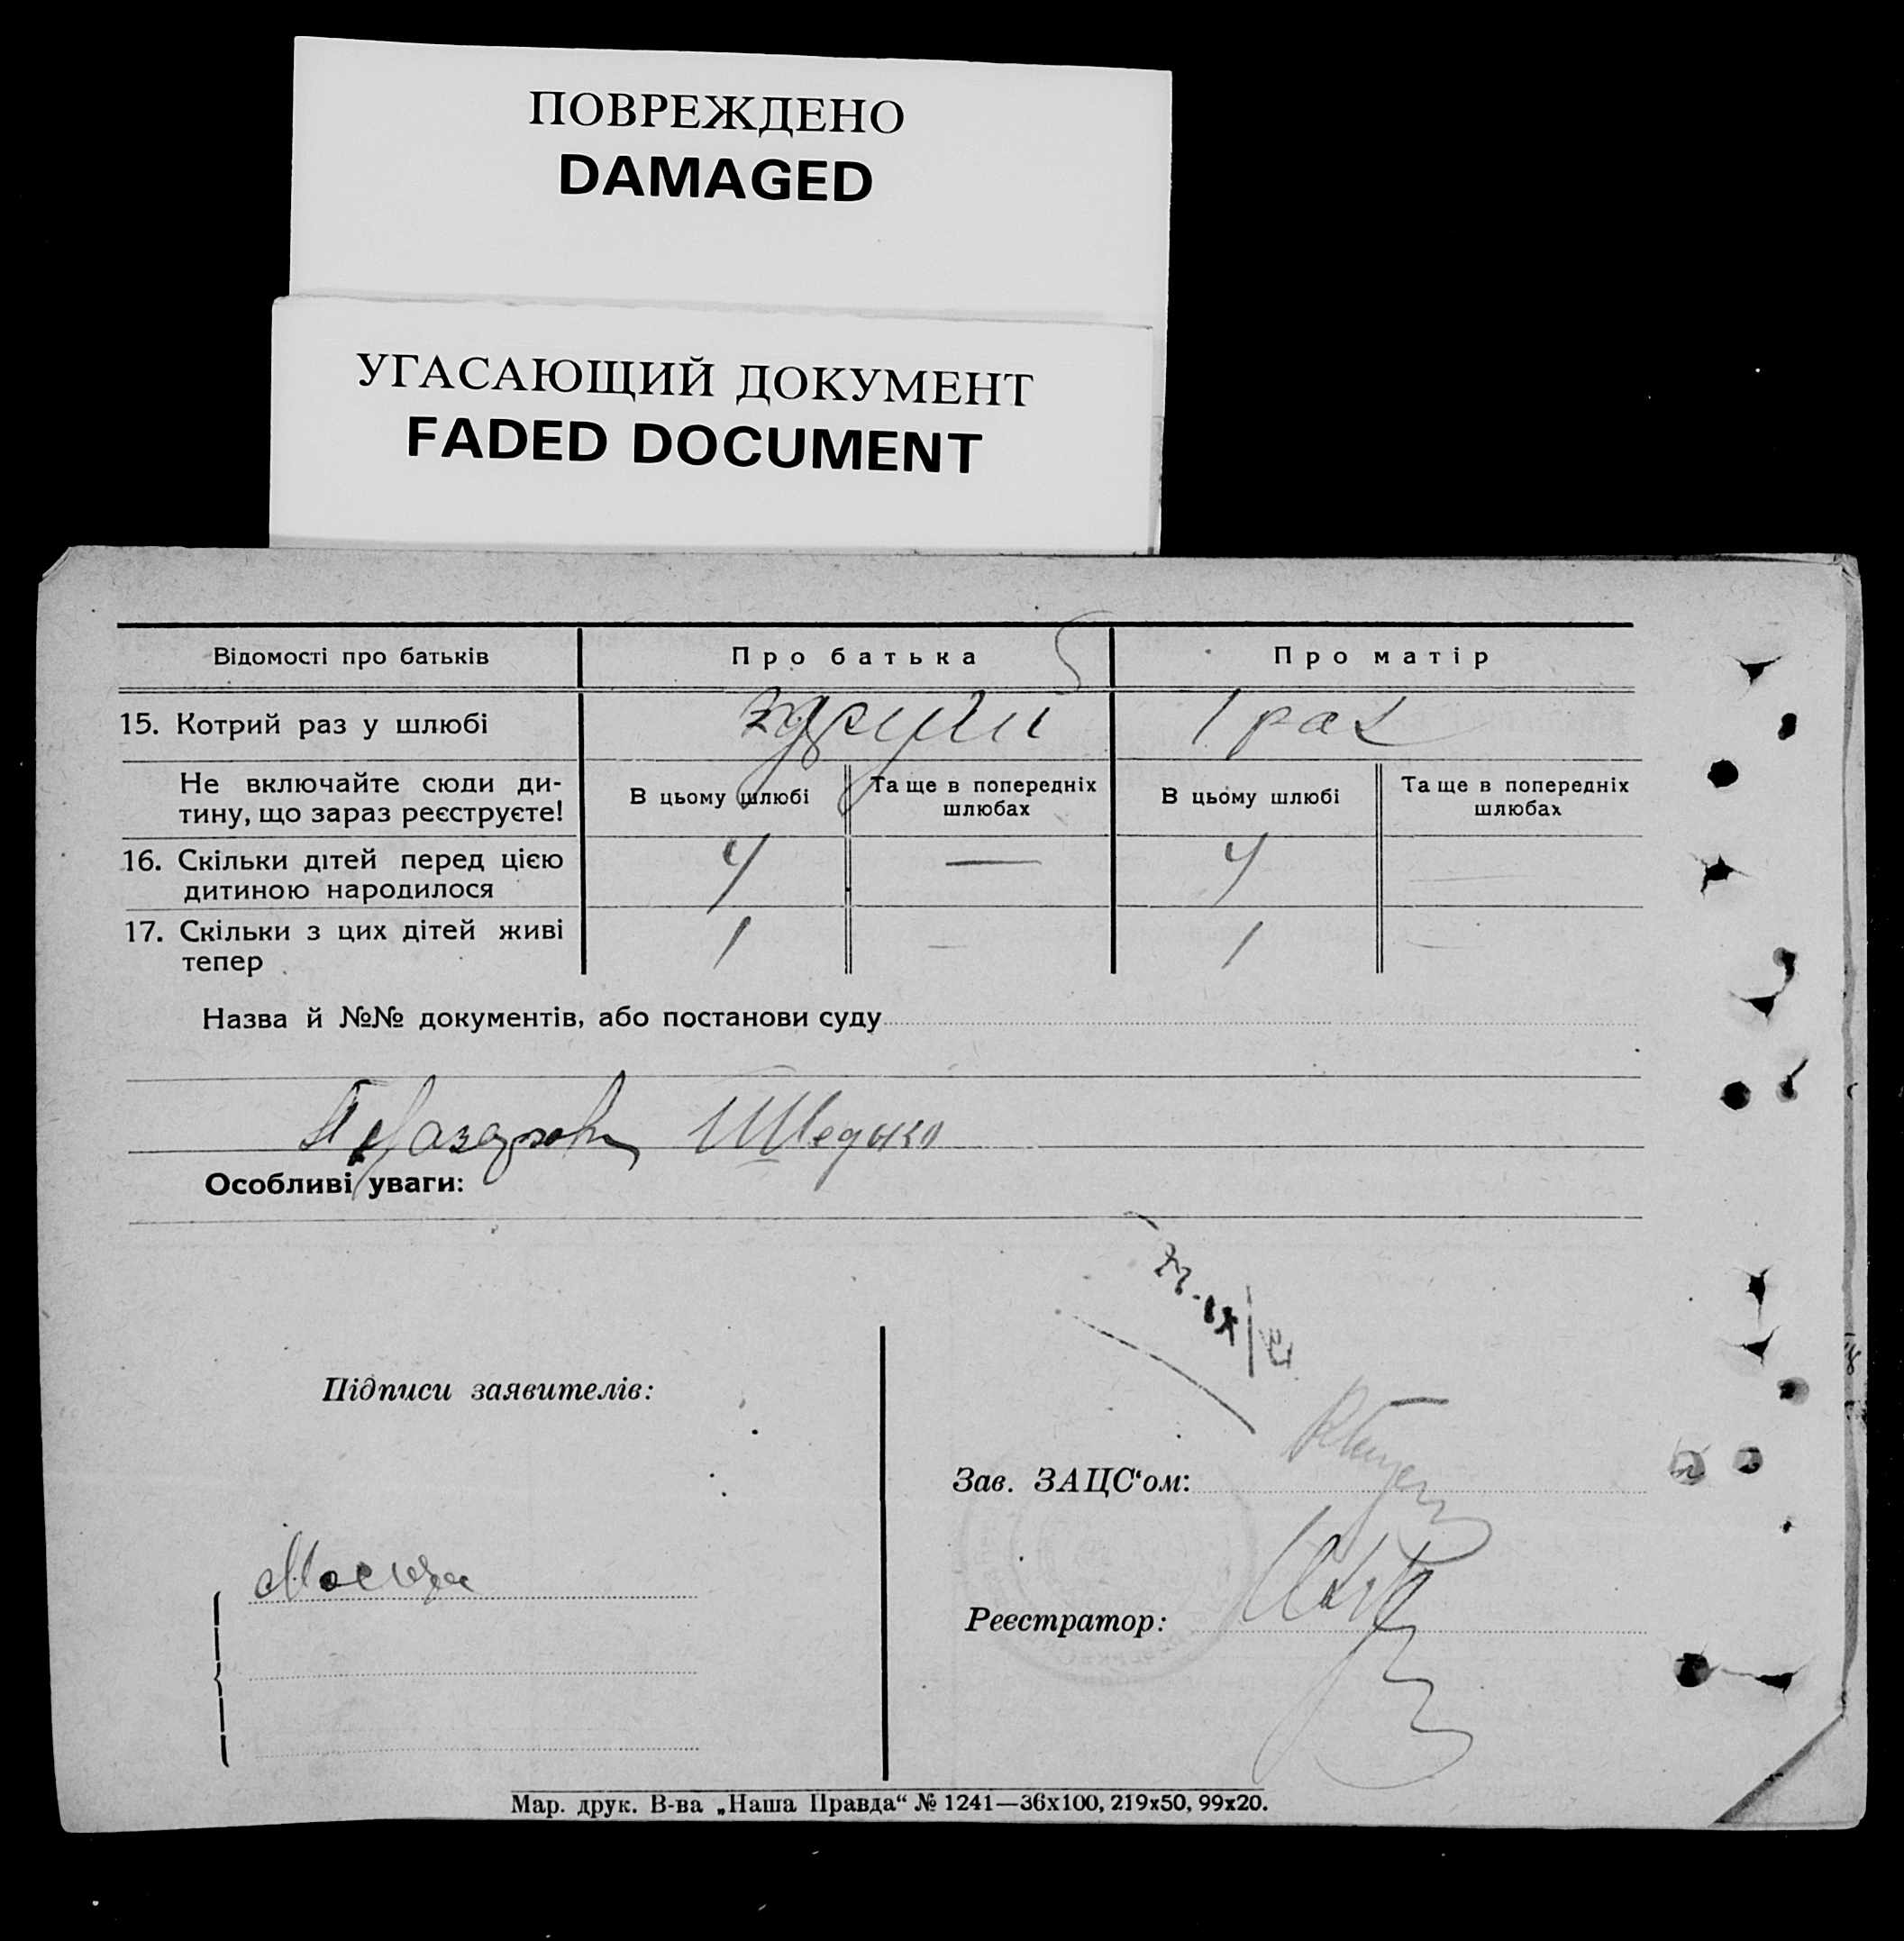 ПОВРЕЖДЕНО
DAMAGED
УГАСАЮЩИЙ ДОКУМЕНТ
FADED DOCUMENT
Відомості про батьків Про батька Про матір
15. Котрий раз у шлюбі другий 1 раз
Не включайте сюди ди-
тину, що зараз реєструєте!
В цьому шлюбі
Та ще в попередніх
шлюбах
В цьому шлюбі
Та ще в попередніх
шлюбах
16. Скільки дітей перед цією
дитиною народилося
4 — 4 —
17. Скільки з цих дітей живі
тепер
1 — 1 —
Назва й №№ документів, або постанови суду
Особливі уваги:
Підписи заявителів:
Зав. ЗАЦС‘ом:
Реєстратор:
Мар. друк. В-ва „Наша Правда“ № 1241—36х100, 219х50, 99х20.